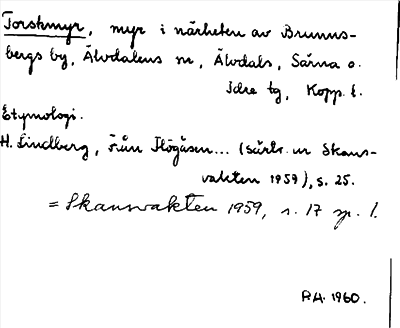 Torskmyr, myr i närheten av Brunns-
bergs by, Älvdalens sn, Älvdals, Särna o.
Idre tg, Kopp. l.
Etymologi.
H. Lindberg, Från Högåsen... (särtr. ur Skans-
vakten 1959), s. 25.
= Skansvakten 1959, s. 17 sp. 1.
RH. 1960.